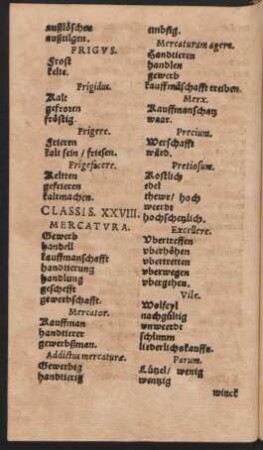 außlöschen
außtilgen.
FRIGVS.
Frost
kelte.
Frigidus.
Kalt
gefroren
fröstig.
Frigere.
Frieren
kalt sein / friesen.
Frigefacere.
Keltten
gefrieren
kaltmachen.
CLASSIS. XXVIII.
MERCATVRA.
Gewerb
handell
kauffmanschafft
handtierung
handlung
geschefft
gewerbschafft.
Mercator.
Kauffman
handtierer
gewerbßman.
Addictus mercaturæ.
Gewerbig
handtierig
embsig.
Mercaturam agere.
Handtieren
handlen
gewerb
kauffmäschafft treiben.
Merx.
Kauffmanschatz
waar.
Precium.
Werschafft
würd.
Pretiosum.
Köstlich
edel
thewr / hoch
weerdt
hochschetzlich.
Excellere.
Vbertreffen
vberhöhen
vbertretten
vberwegen
vbergehen.
Vile.
Wolfeyl
nachgültig
vnweerdt
schlimm
liederlichskauffs.
Parum.
Lützel / wenig
wentzig
winck